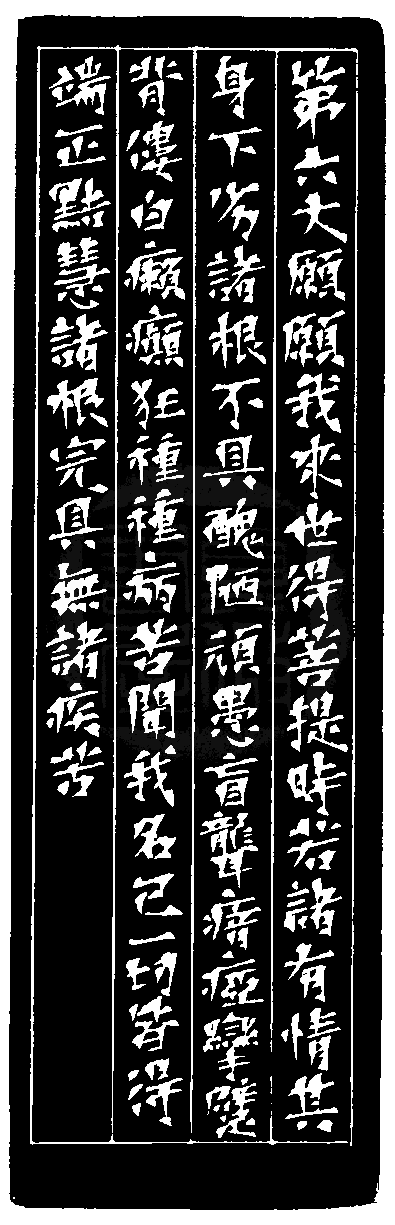 第六大願願我來世得菩提時若諸有情其
身下劣諸根不具醜陋頑愚盲聾瘖瘂攣躄
背僂白癩癲狂種種病苦聞我名已一切皆得
端正黠慧諸根完具無諸疾苦